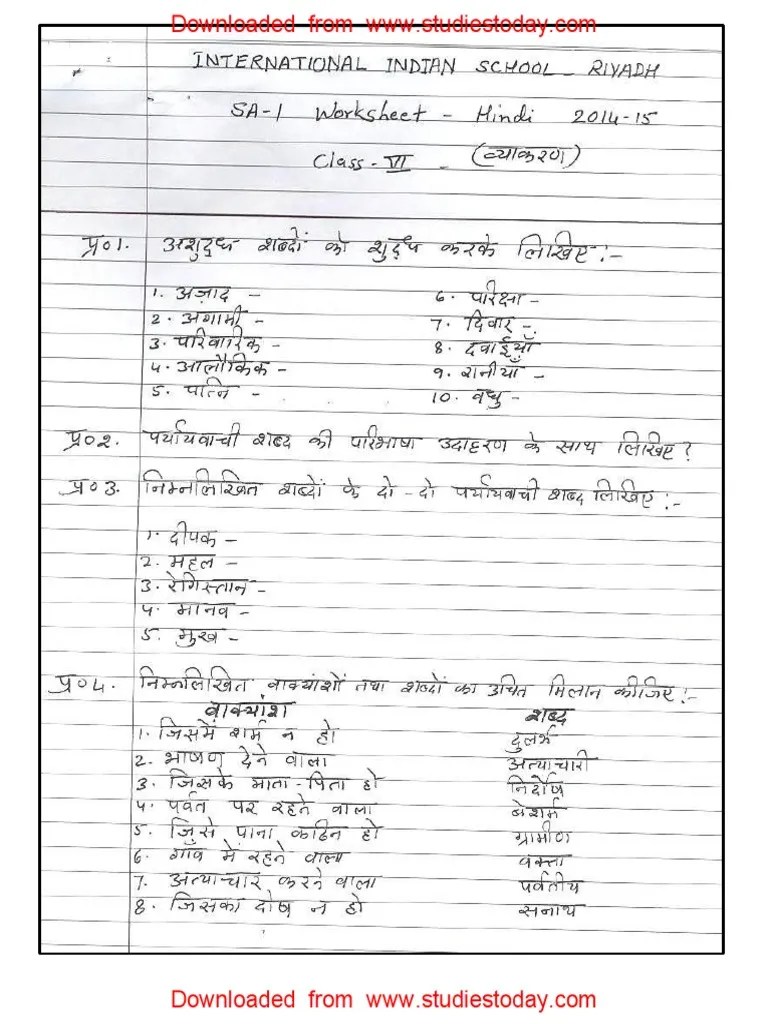 Downloaded from www.studiestoday.com
INTERNATIONAL INDIAN SCHOOL - RIYADH
SA-1 Worksheet - Hindi 2014-15
Class - VI - (व्याकरण)
प्र०1. अशुद्ध शब्दों को शुद्ध करके लिखिए :-
1. अज़ाद -
2. अगामी -
3. परिवारिक -
4. आलौकिक -
5. पत्नि -
6. परिक्षा -
7. दिवार -
8. दवाईयाँ
9. रानीयाँ -
10. वधु -
प्र०2. पर्यायवाची शब्द की परिभाषा उदाहरण के साथ लिखिए ?
प्र०3. निम्नलिखित शब्दों के दो-दो पर्यायवाची शब्द लिखिए :-
1. दीपक -
2. महल -
3. रेगिस्तान -
4. मानव -
5. मुख -
प्र०4. निम्नलिखित वाक्यांशों तथा शब्दों का उचित मिलान कीजिए :-
वाक्यांश शब्द
1. जिसमें शर्म न हो दुर्लभ
2. भाषण देने वाला अत्याचारी
3. जिसके माता-पिता हो निर्दोष
4. पर्वत पर रहने वाला बेशर्म
5. जिसे पाना कठिन हो ग्रामीण
6. गाँव में रहने वाला वक्ता
7. अत्याचार करने वाला पर्वतीय
8. जिसका दोष न हो सनाथ
Downloaded from www.studiestoday.com